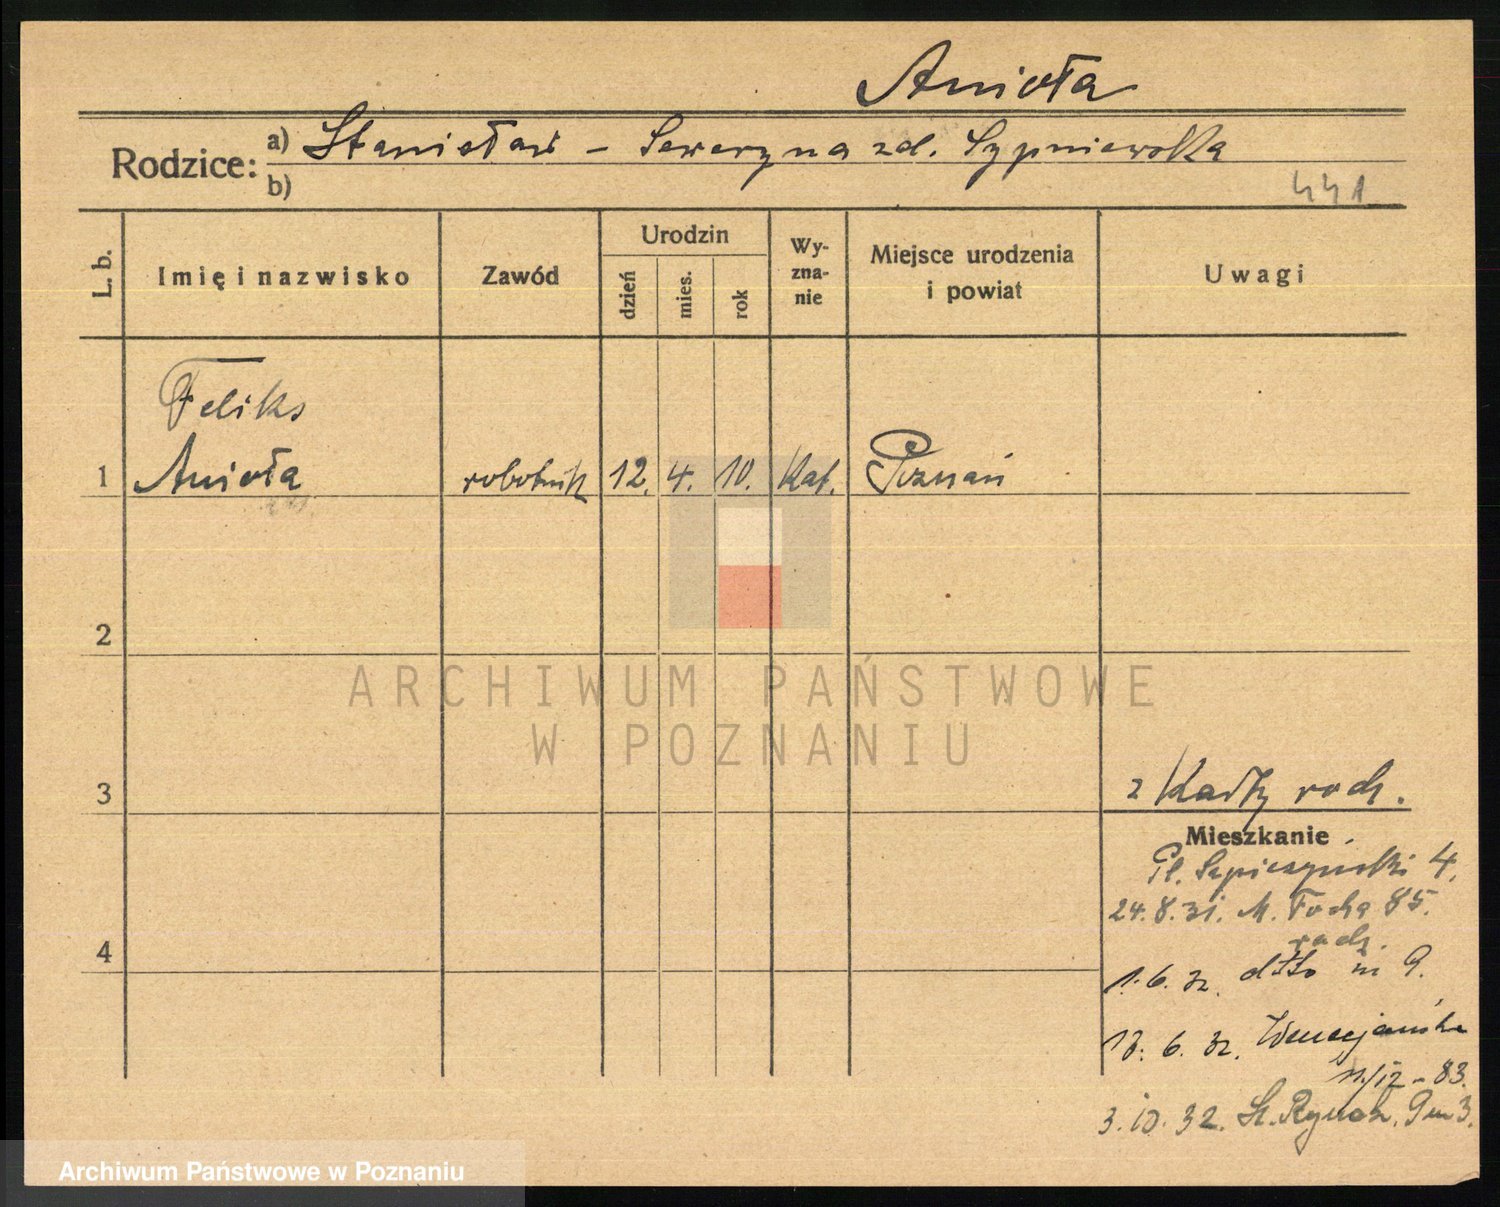 Anioła
Rodzice: a) Stanisław – Seweryna zd. Sypniewska
b)
441
L. b.
Imię i nazwisko
Zawód
Urodzin
dzień
mies.
rok
Wy-
zna-
nie
Miejsce urodzenia
i powiat
Uwagi
Feliks
1 Anioła robotnik 12. 4. 10. Kat. Poznań
2
ARCHIWUM PAŃSTWOWE
W POZNANIU
3
z Karty rodz.
Mieszkanie
Pl. Sapieżyński 4.
24.8.31. M. Focha 85.
rodz.
4
1.6.32. dtto m 9.
13.6.32. Wenecjańska
3.10.32. St. Rynek. 9 m 3.
Archiwum Państwowe w Poznaniu